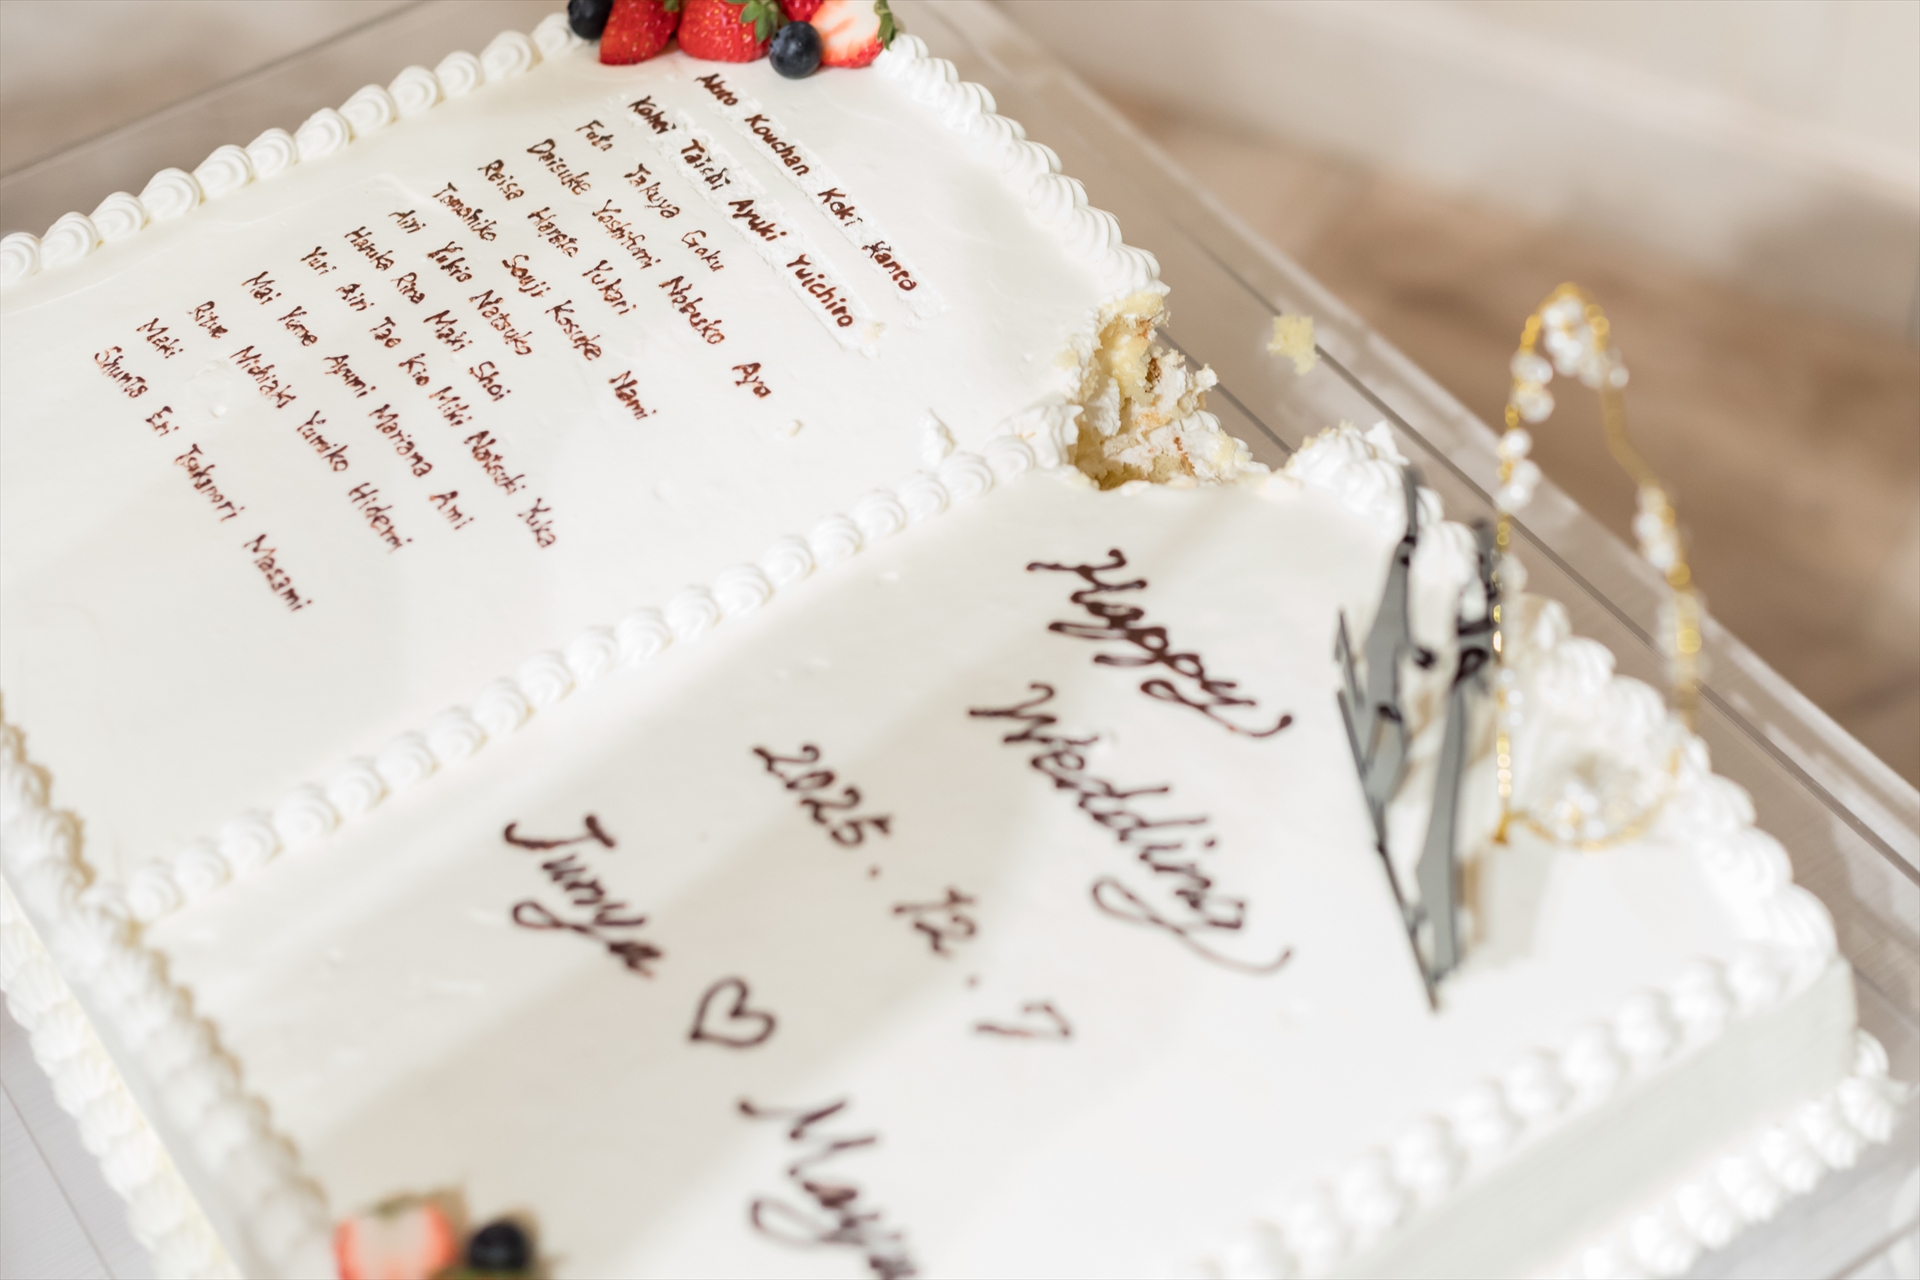 Kouchan Koki
Kohei Taishi Ayuki Yuichiro
Futa Takuya Gaku
Daisuke Yoshifumi Nobuko Aya
Reisa Hayate Yukari
Tomohiko Souji Kosuke Nami
Airi Yukio Natsuko
Haruka Rina Maki Shoi
Yuri Airi Tae Kio Miki Natsuki Yuka
Mai Yume Ayumi Mariana Ami
Michiaki Yumiko Hidemi
Maki
Eri Tsukanori Masami
Happy
Wedding
2025.12.7
Junya ♡